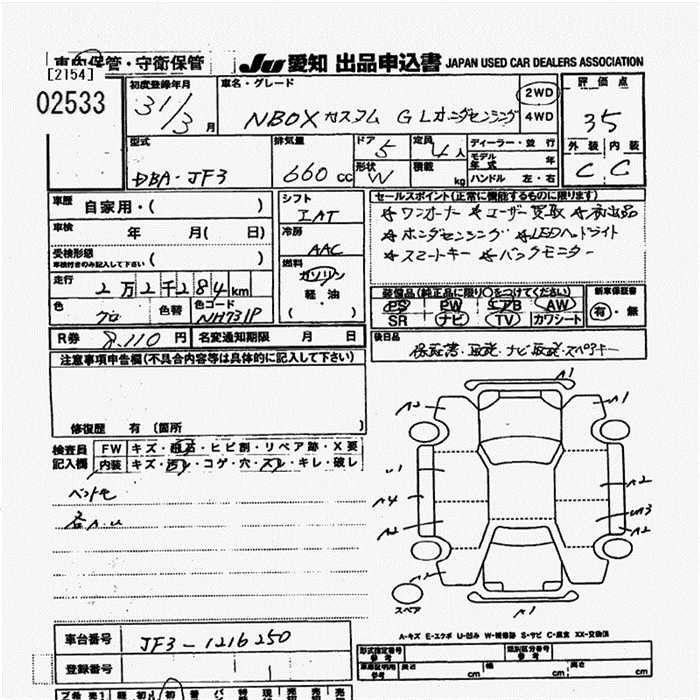 車内保管・守衛保管 JU 愛知 出品申込書 JAPAN USED CAR DEALERS ASSOCIATION
[2154]
02533
初度登録年月 31/3 月
車名・グレード NBOX カスタム GLホンダセンシング
2WD
4WD
評価点
35
外装 内装
C C
型式 DBA-JF3
排気量 660 cc
ドア 5
形状 W
定員 4人
積載 kg
ディーラー・並行
モデル年式 年
ハンドル 左・右
車歴 自家用・( )
車検 年 月( 日)
受検形態
車検付きのみ記入して下さい ( )
走行 2万2千284km
色 クロ 色替 色コード NH731P
シフト IAT
冷房 AAC
燃料 ガソリン
軽・油
( )
セールスポイント(正常に機能するものに限ります)
☆ワンオーナー ☆ユーザー買取
☆ホンダセンシング ☆LEDヘッドライト
☆スマートキー ☆バックモニター
装備品(純正品に限り○をつけてください)
PS PW エアB AW
SR ナビ TV カワシート
新車保証書
有・無
R券 8,110円 名変通知期限 月 日
後日品
保証書・取説・ナビ取説・スペアキー
注意事項申告欄(不具合内容等は具体的に記入して下さい)
修復歴 有 〔箇所 〕
検査員記入欄
FW キズ・飛石・ヒビ割・リペア跡・X要
内装 キズ・汚レ・コゲ・穴・スレ・キレ・破レ
各A.U
A1
A2 A1
U1 A2
A4
A2 A2
A2
A1
スペア
A-キズ E-エクボ U-凹み W-補修跡 S-サビ C-腐食 XX-交換済
車台番号 JF3-1216250
登録番号
形式指定番号 参考
類別区分番号 参考
車庫証明用 参考 長さ cm 幅 cm 高さ cm